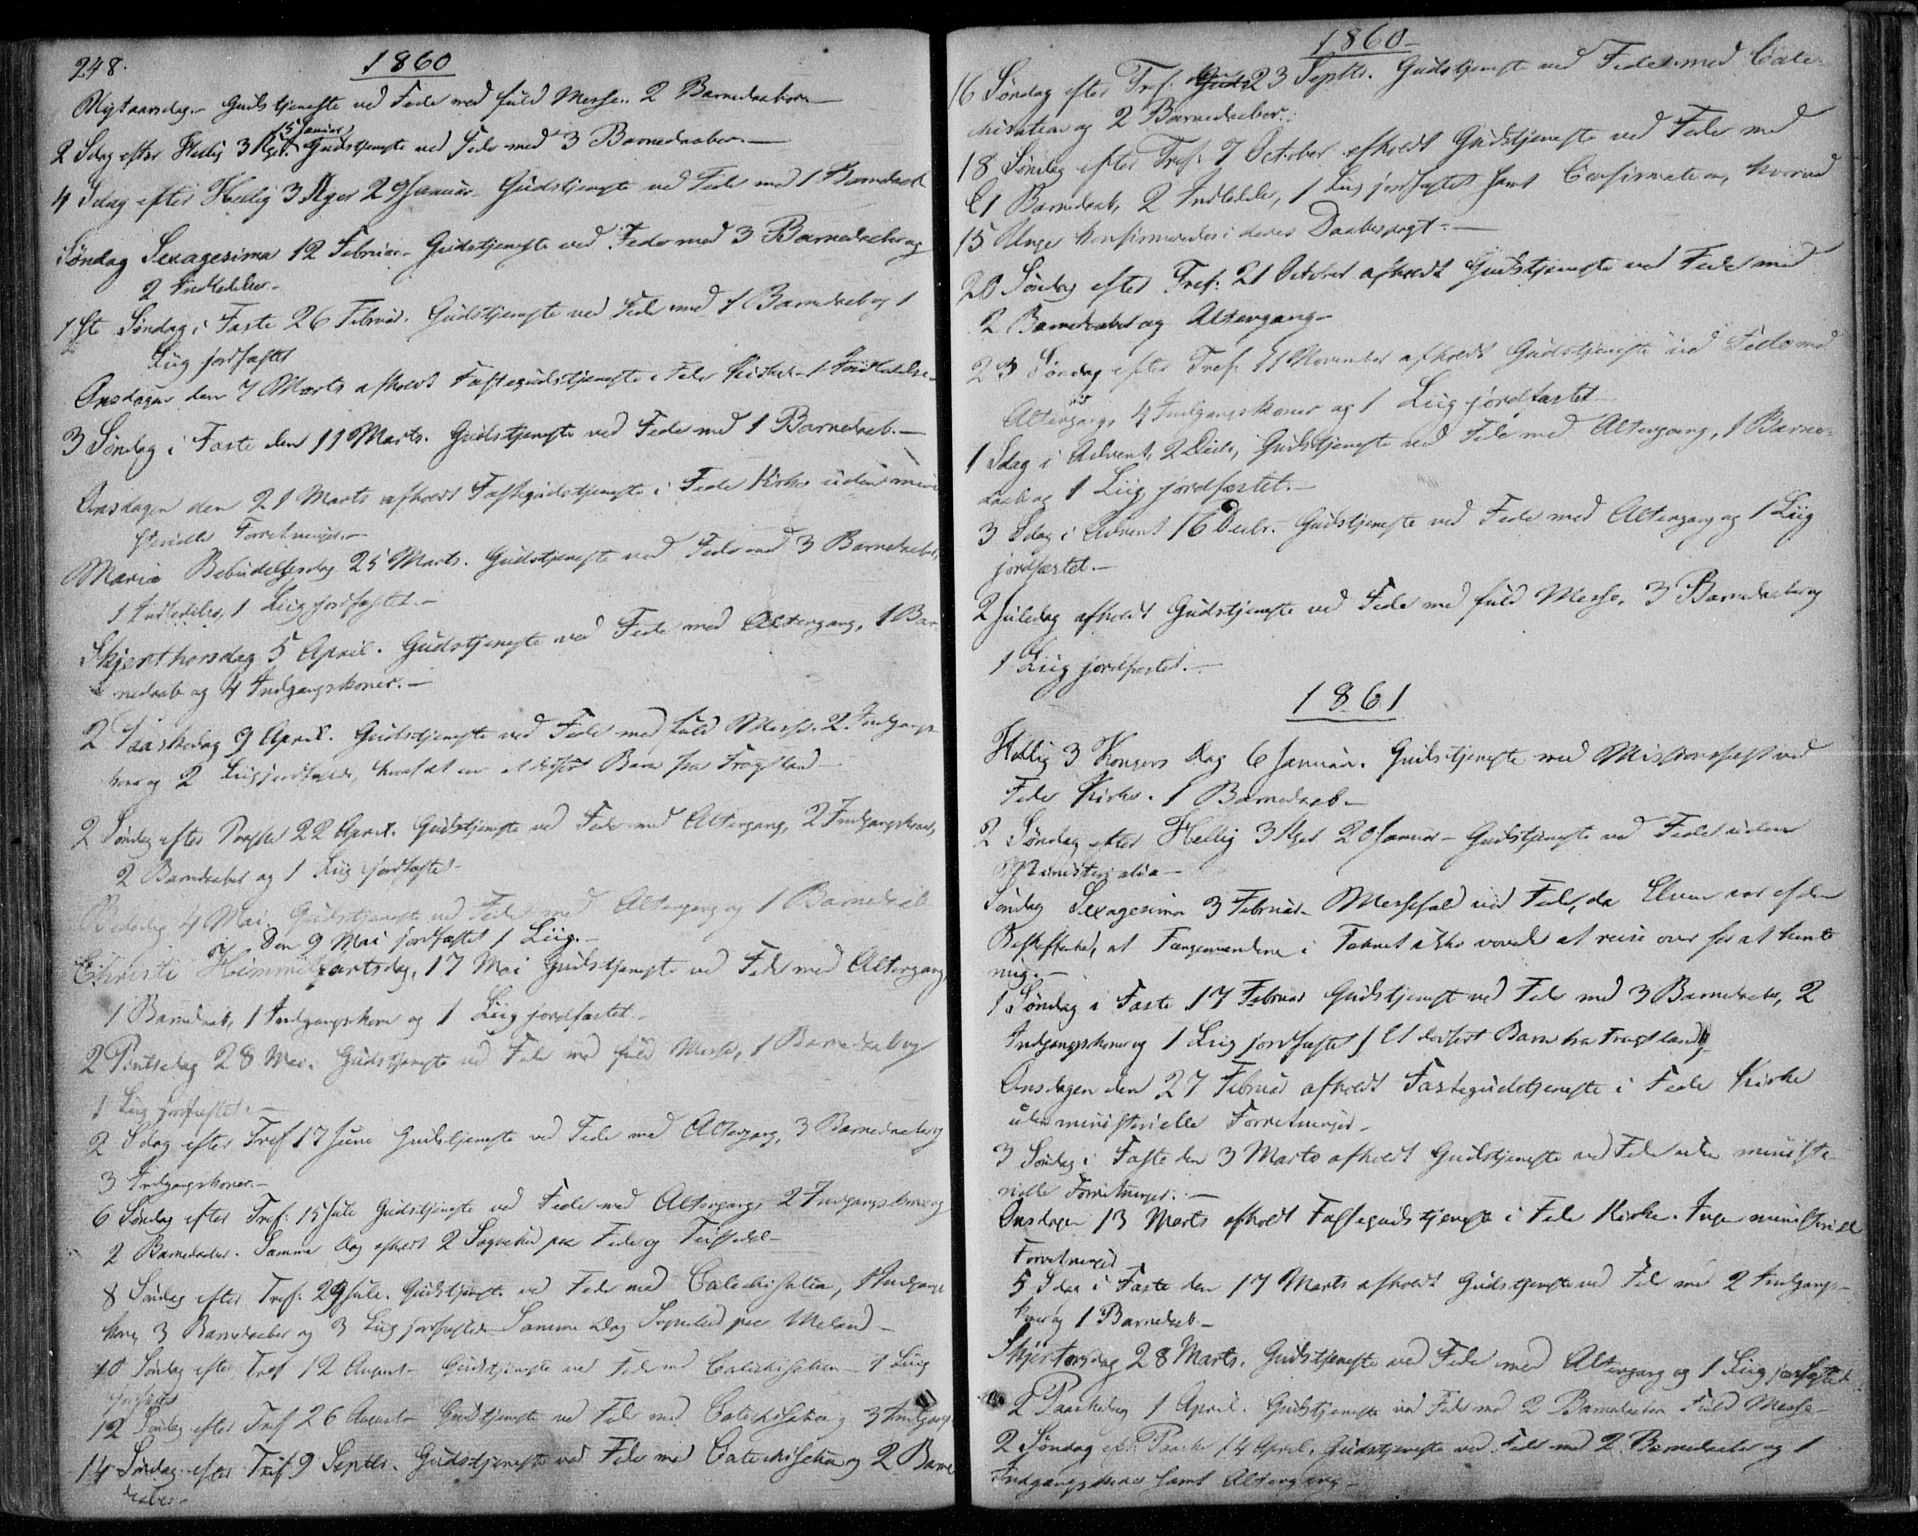 248.
1860
Nytaarsdag. Gudstjeneste ved Fede med fuld Messe. 2 Barnedaaber.—
15 Januar
2 Sdag efter Hellig 3 Kger. Gudstjeneste ved Fede med 3 Barnedaaber.—
4 Sdag efter Hellig 3 Kger 29 Januar. Gudstjeneste ved Fede med 1 Barnedaab
Søndag Sexagesima 12 Februar. Gudstjeneste ved Fede med 3 Barnedaaber og
2 Indledelser.
1ste Søndag i Faste 26 Februar. Gudstjeneste ved Fede med 1 Barnedaab og 1
Liig jordfæstet
Onsdagen den 7 Marts afholdt Fastegudstjeneste i Fede Kirke. 1 Indledelse.
3 Søndag i Faste den 11 Marts. Gudstjeneste ved Fede med 1 Barnedaab.—
Onsdagen den 21 Marts afholdt Fastegudstjeneste i Fede Kirke uden mini
sterielle Forretninger.—
Mariæ Bebudelsesdag 25 Marts. Gudstjeneste ved Fede med 3 Barnedaaber,
1 Indledelse, 1 Liig jordfæstet.—
Skjerthorsdag 5 April. Gudstjeneste ved Fede med Altergang, 1 Bar
nedaab og 4 Indgangskoner.—
2 Paaskedag 9 April. Gudstjeneste ved Fede med fuld Messe. 2 Indgangs
koner og 2 Liig jordfæstede, hvoraf et Barn fra Frogtland
2 Søndag efter Paaske 22 April. Gudstjeneste ved Fede med Altergang, 2 Indgangskoner,
2 Barnedaaber og 1 Liig jordfæstet
Bededag 4 Mai, Gudstjeneste ved Fede med Altergang og 1 Barnedaab
Den 9 Mai jordfæstet 1 Liig.—
Christi Himmelfartsdag, 17 Mai Gudstjeneste ved Fede med Altergang
1 Barnedaab, 1 Indgangskone og 1 Liig jordfæstet.
2 Pintsedag 28 Mai. Gudstjeneste ved Fede med fuld Messe, 1 Barnedaab og
1 Liig jordfæstet.—
2 Sdag efter Tref 17 Juni Gudstjeneste ved Fede med Altergang, 3 Barnedaaber og
3 Indgangskoner.—
6 Søndag efter Tref: 15 Juli Gudstjeneste ved Fede med Altergang, 2 Indgangskoner og
2 Barnedaaber. Samme Dag afholdt 2 paa Fede og
8 Søndag efter Tref: 29 Juli. Gudstjeneste ved Fede med Catechisation, 1 Indgangs
kone, 3 Barnedaaber og 3 Liig jordfæstede. Samme Dag paa Meland—
10 Søndag efter Tref 12 August. Gudstjeneste ved Fede med Catechisation 1 Liig
jordfæstet
12 Søndag efter Tref 26 August. Gudstjeneste ved Fede med Catechisation, 3 Indgangs
14 Søndag efter Tref 9 Septbr. Gudstjeneste ved Fede med Catechisation og 2 Barne
daaber.
1860
16 Søndag efter Tref: 23 Septbr. Gudstjeneste ved Fede med Cate
chisation og 2 Barnedaaber.
18 Søndag efter Tref: 7 October afholdt Gudstjeneste ved Fede med
1 Barnedaab, 2 Indledelser, 1 Liig jordfæstet samt Confirmation, hvorved
15 Unge konfirmeredes i deres Daabspagt.—
20 Søndag efter Tref: 21 October afholdt Gudstjeneste ved Fede med
2 Barnedaaber og Altergang—
23 Søndag efter Tref: 11 November afholdt Gudstjeneste ved Fede med
Altergang, 4 Indgangskoner og 1 Liig jordfæstet
1 Sdag i Advent, 2 Decbr, Gudstjeneste ved Fede med Altergang, 1 Barne
daab og 1 Liig jordfæstet.—
3 Sdag i Advent 16 Decbr. Gudstjeneste ved Fede med Altergang og 1 Liig
jordfæstet.—
2 Juledag afholdt Gudstjeneste ved Fede med fuld Messe, 3 Barnedaaber og
1 Liig jordfæstet.—
1861
Hellig 3 Kongers Dag 6 Januar. Gudstjeneste med Missionsfest ved
Fede Kirke. 1 Barnedaab—
2 Søndag efter Hellig 3 Kger 20 Januar— Gudstjeneste ved Fede uden
Ministerialia—
Søndag Sexagesima 3 Februar— Messefald ved Fede, da Elven var af den
Beskaffenhed, at i ikke vovede at reise over for at hente
mig.—
1 Søndag i Faste 17 Februar Gudstjeneste ved Fede med 3 Barnedaaber, 2
Indgangskoner og 1 Liig jordfæstet (Et Barn fra Frogtland)
Onsdagen den 27 Februar afholdt Fastegudstjeneste i Fede Kirke
uden ministerielle Forretninger—
3 Søndag i Faste den 3 Marts afholdt Gudstjeneste ved Fede uden ministe
rielle Forretninger.—
Onsdagen 13 Marts afholdt Fastegudstjeneste i Fede Kirke. Ingen ministerielle
Forretninger
5 Sdag i Faste den 17 Marts afholdt Gudstjeneste ved Fede med 2 Indgangs-
koner og 1 Barnedaab—
Skjertorsdag 28 Marts. Gudstjeneste ved Fede med Altergang og 1 Liig jordfæstet
2 Paaskedag 1 April. Gudstjeneste ved Fede med 2 Barnedaaber Fuld Messe—
2 Søndag efter Paaske 14 April. Gudstjeneste ved Fede med 2 Barnedaaber og 1
Indgangskone samt Altergang—